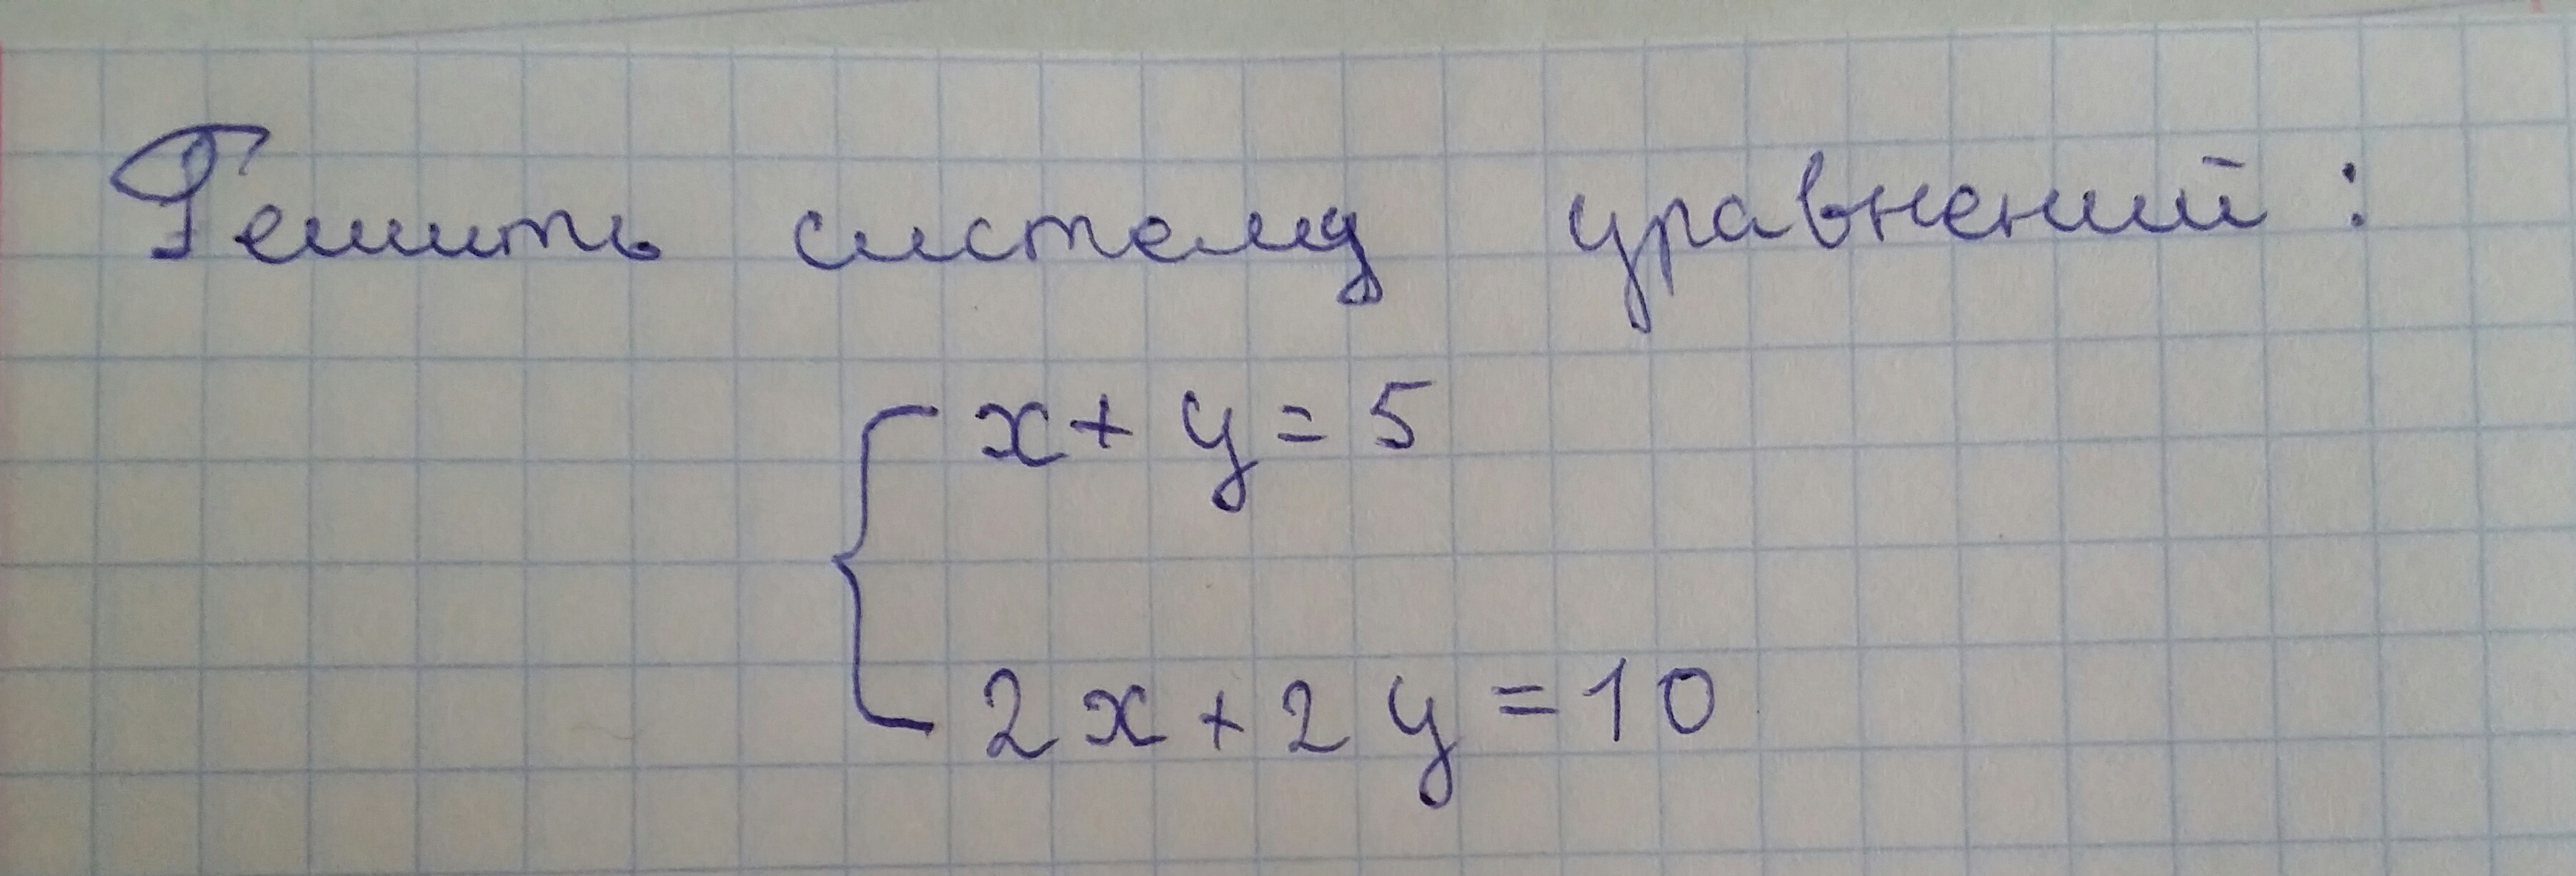 Решить систему уравнений:
x + y = 5
2x + 2y = 10